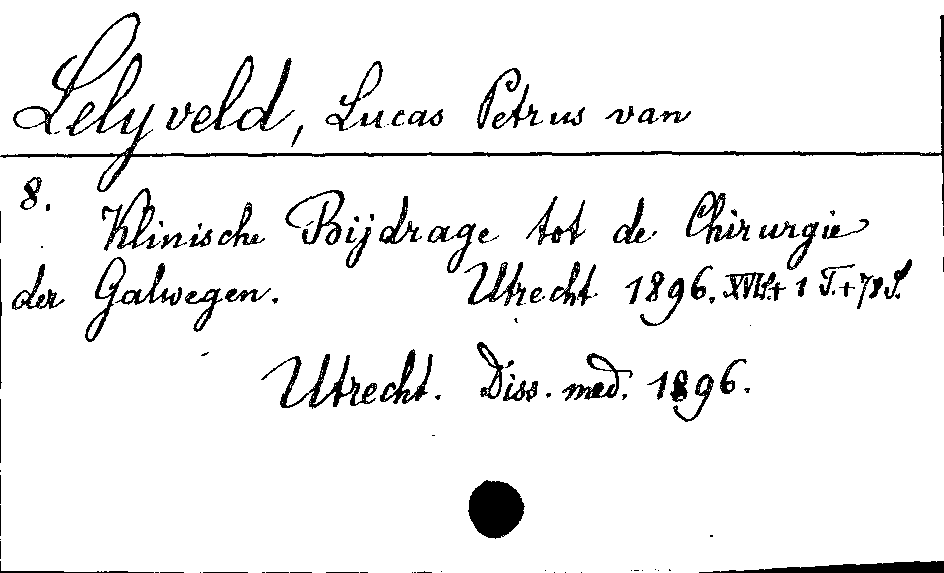 Lelyveld, Lucas Petrus van
8. Klinische Bijdrage tot de Chirurgie
der Galwegen. Utrecht 1896. XVI S. + 1 T. + 78 S.
Utrecht. Diss. med. 1896.